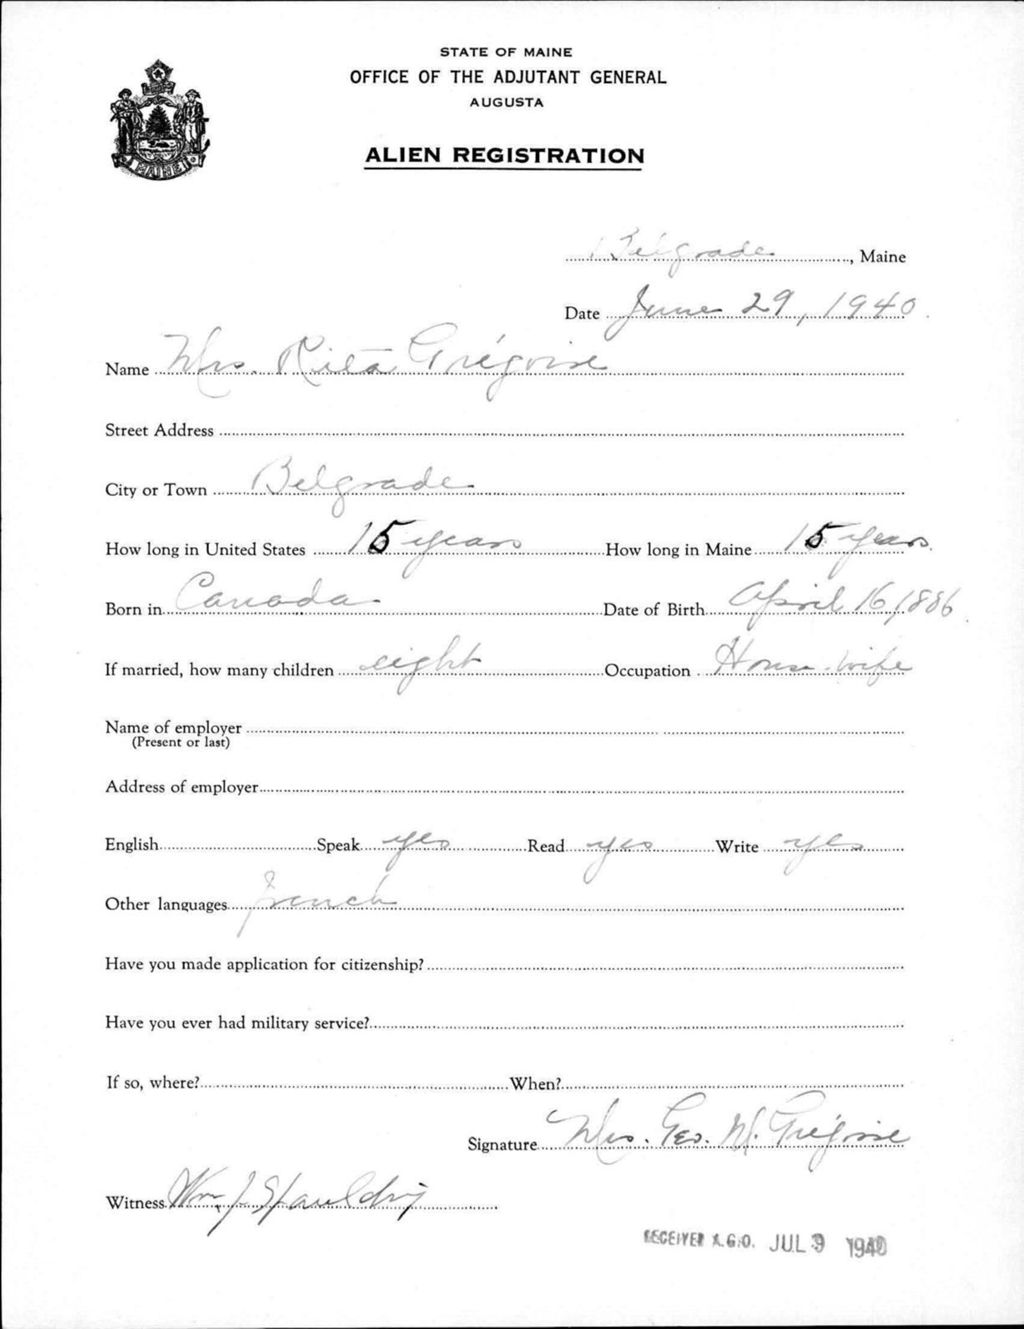 STATE OF MAINE
OFFICE OF THE ADJUTANT GENERAL
AUGUSTA
MAINE
ALIEN REGISTRATION
Belgrade, Maine
Date June 29, 1940.
Name Mrs. Rita Grégoire
Street Address
City or Town Belgrade
How long in United States 15 years How long in Maine 15 years.
Born in Canada Date of Birth April 16, 1886
If married, how many children eight Occupation House-wife
Name of employer
(Present or last)
Address of employer
English Speak yes Read yes Write yes
Other languages french
Have you made application for citizenship?
Have you ever had military service?
If so, where? When?
Signature Mrs. Geo. W. Grégoire
Witness Wm J Spaulding
RECEIVED A.G.O. JUL 9 1940